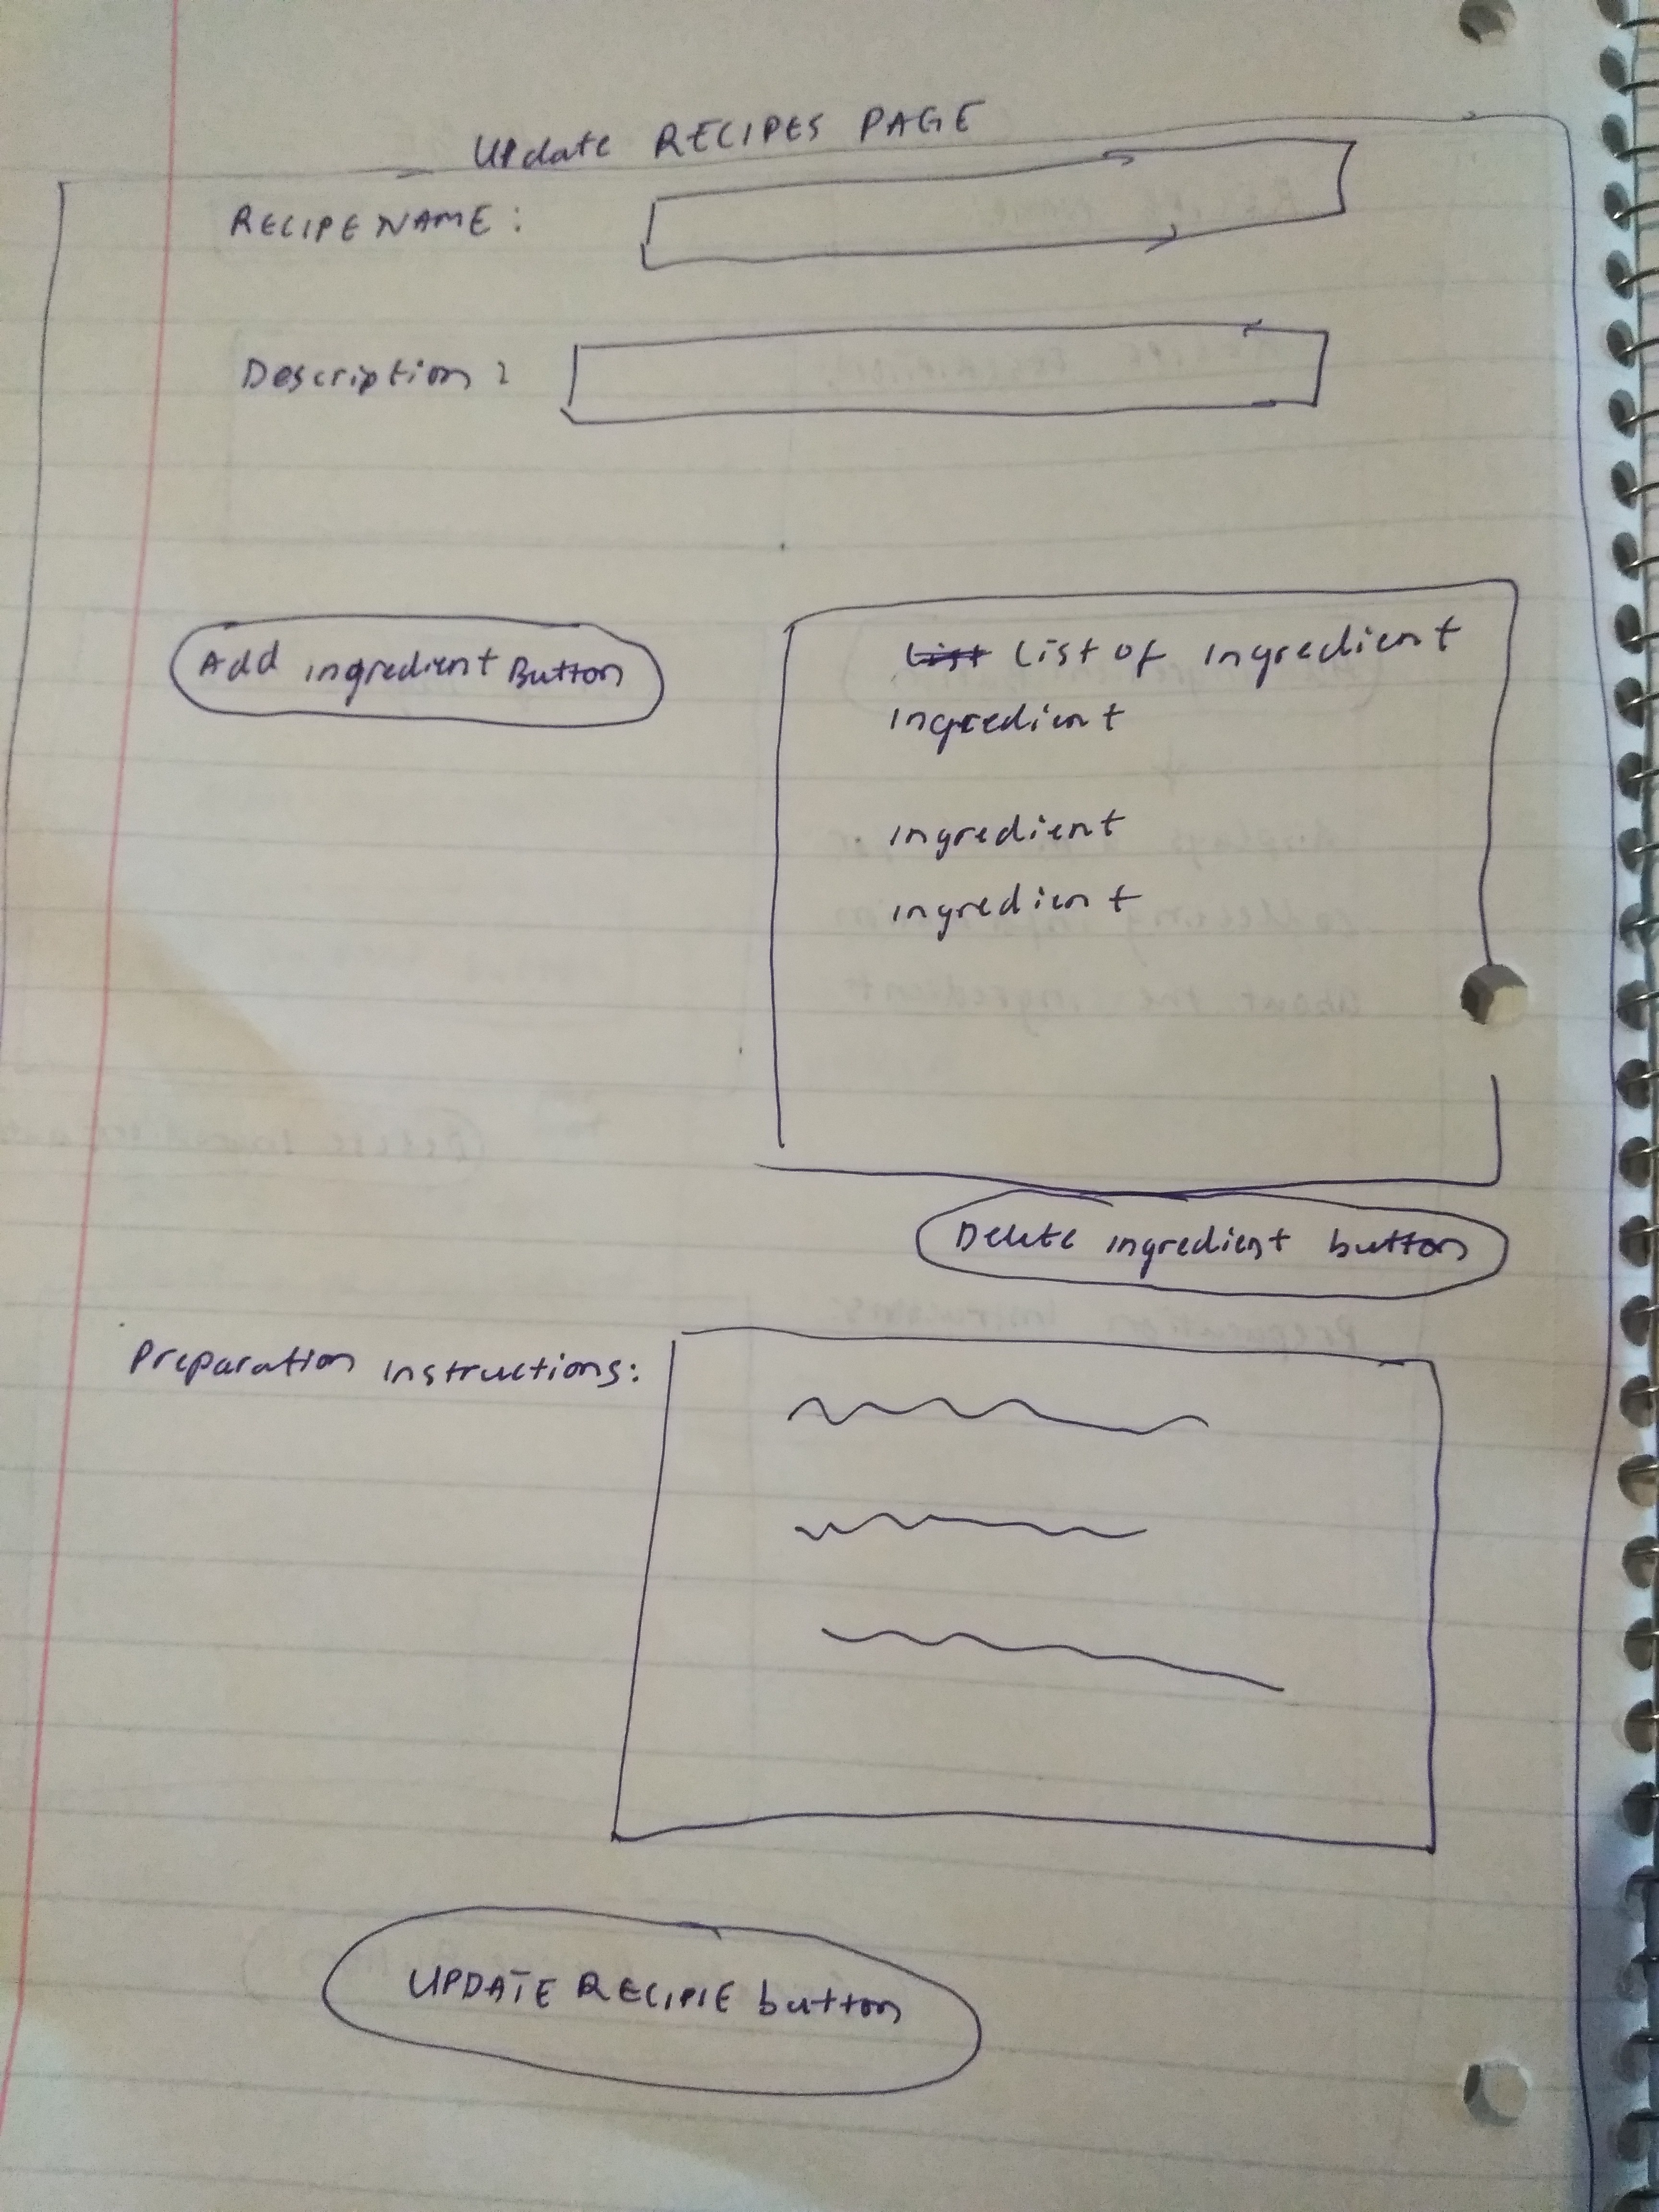 Update RECIPES PAGE
RECIPE NAME :
Description :
Add ingredient Button
List List of Ingredient
Ingredient
Ingredient
Ingredient
Delete ingredient button
Preparation Instructions:
UPDATE RECIPIE button